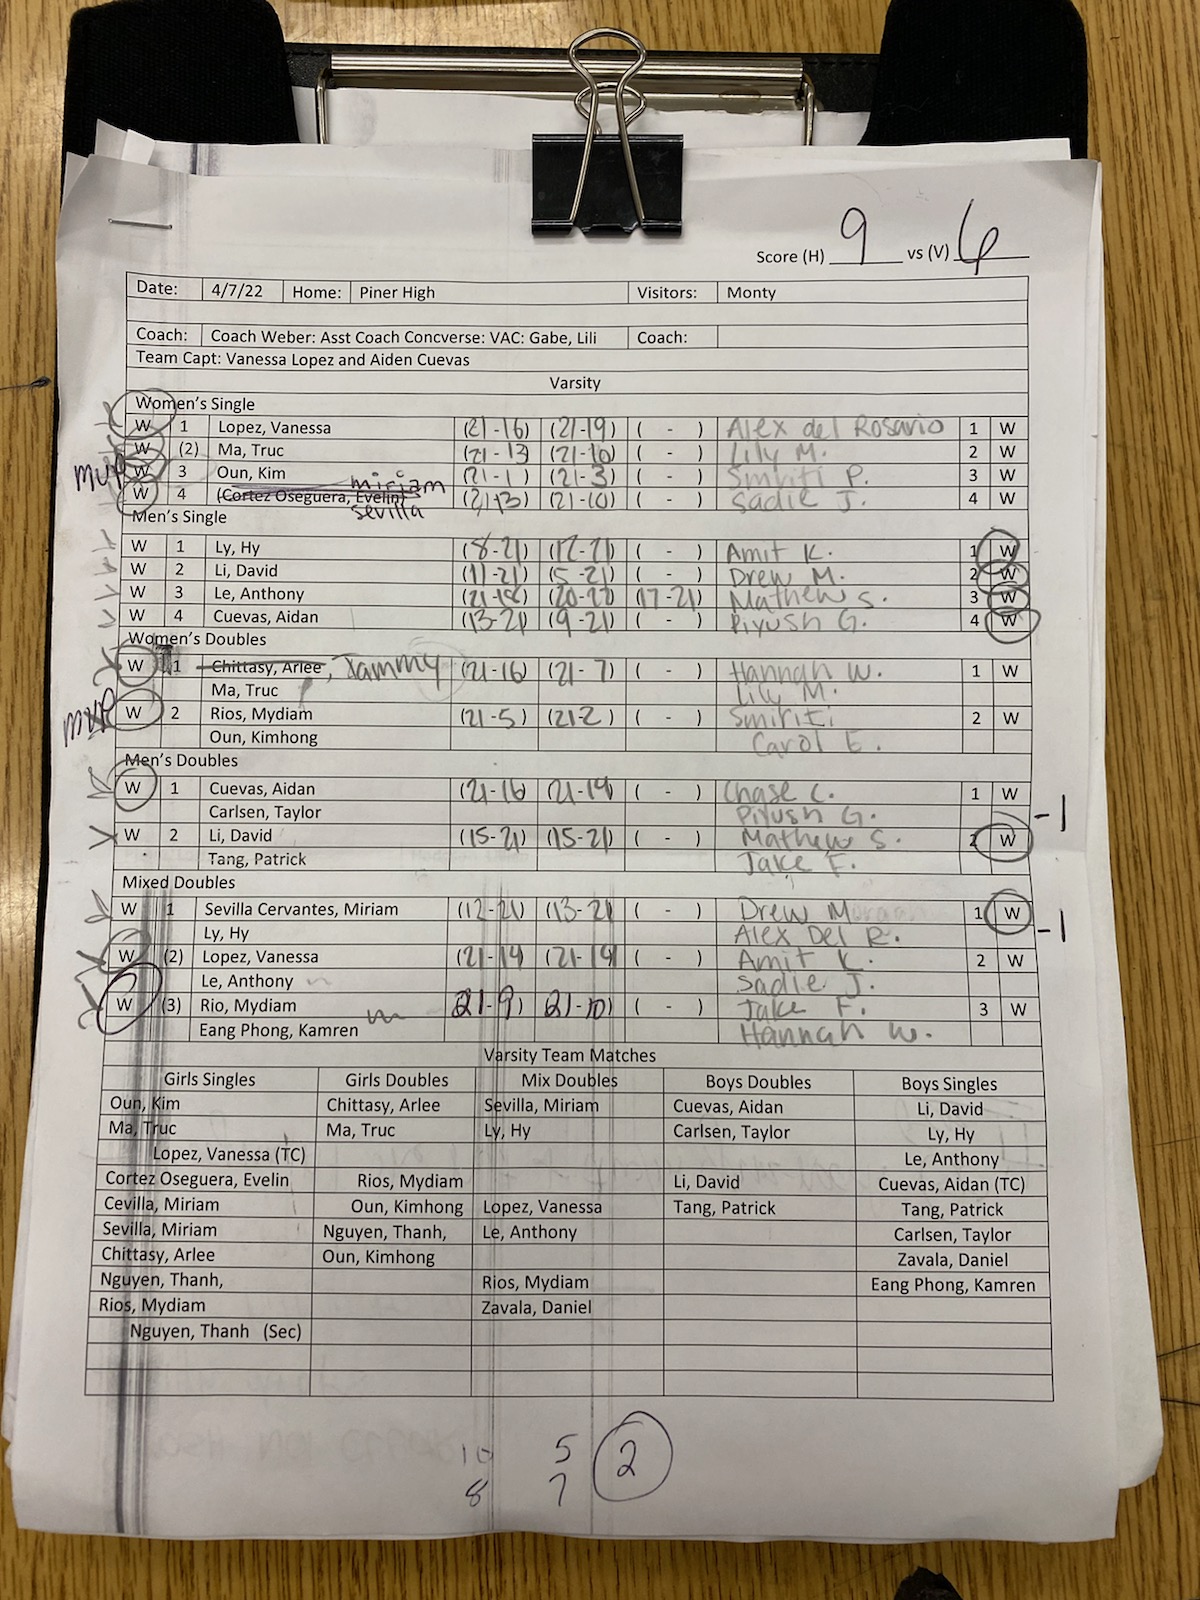 Score (H) 9 vs (V) 6
Date: 4/7/22 Home: Piner High Visitors: Monty
Coach: Coach Weber: Asst Coach Concverse: VAC: Gabe, Lili Coach:
Team Capt: Vanessa Lopez and Aiden Cuevas
Varsity
Women's Single
W 1 Lopez, Vanessa (21-16) (21-19) ( - ) Alex del Rosario 1 W
W (2) Ma, Truc (21-13) (21-10) ( - ) Lily M. 2 W
MVP W 3 Oun, Kim (21-1) (21-3) ( - ) Smriti P. 3 W
miriam
W 4 (Cortez Oseguera, Evelin) (21-13) (21-10) ( - ) Sadie J. 4 W
sevilla
Men's Single
W 1 Ly, Hy (8-21) (12-21) ( - ) Amit K. 1 W
W 2 Li, David (11-21) (5-21) ( - ) Drew M. 2 W
W 3 Le, Anthony (21-18) (20-22) (17-21) Mathew S. 3 W
W 4 Cuevas, Aidan (13-21) (9-21) ( - ) Piyush G. 4 W
Women's Doubles
W 1 Chittasy, Arlee, Tammy (21-16) (21-7) ( - ) Hannah W. 1 W
Ma, Truc Lily M.
MVP W 2 Rios, Mydiam (21-5) (21-2) ( - ) Smiriti 2 W
Oun, Kimhong Carol E.
Men's Doubles
W 1 Cuevas, Aidan (21-16) (21-19) ( - ) Chase C. 1 W
Carlsen, Taylor Piyush G. -1
W 2 Li, David (15-21) (15-21) ( - ) Mathew S. 2 W
Tang, Patrick Jake F.
Mixed Doubles
W 1 Sevilla Cervantes, Miriam (12-21) (13-21) ( - ) Drew Morgan 1 W
Ly, Hy Alex Del R. -1
W (2) Lopez, Vanessa (21-14) (21-19) ( - ) Amit K. 2 W
Le, Anthony Sadie J.
W (3) Rio, Mydiam 21-9) 21-10) ( - ) Jake F. 3 W
Eang Phong, Kamren Hannah W.
Varsity Team Matches
Girls Singles Girls Doubles Mix Doubles Boys Doubles Boys Singles
Oun, Kim Chittasy, Arlee Sevilla, Miriam Cuevas, Aidan Li, David
Ma, Truc Ma, Truc Ly, Hy Carlsen, Taylor Ly, Hy
Lopez, Vanessa (TC) Le, Anthony
Cortez Oseguera, Evelin Rios, Mydiam Li, David Cuevas, Aidan (TC)
Cevilla, Miriam Oun, Kimhong Lopez, Vanessa Tang, Patrick Tang, Patrick
Sevilla, Miriam Nguyen, Thanh, Le, Anthony Carlsen, Taylor
Chittasy, Arlee Oun, Kimhong Zavala, Daniel
Nguyen, Thanh, Rios, Mydiam Eang Phong, Kamren
Rios, Mydiam Zavala, Daniel
Nguyen, Thanh (Sec)
10 5 2
8 7